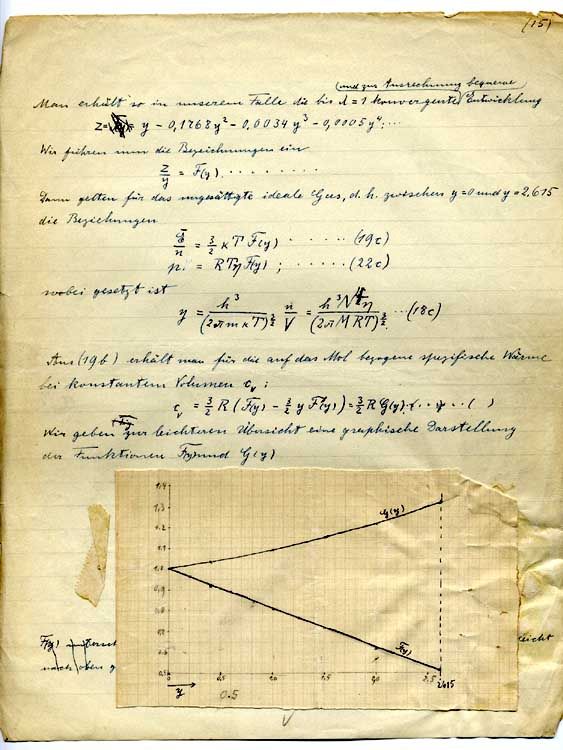 (15)
(und zur Ausrechnung bequeme)
Man erhält so in unserem Falle die bis λ = 1 konvergente Entwicklung
z = y - 0,1768 y² - 0,0034 y³ - 0,0005 y⁴ ...
Wir führen nun die Bezeichnungen ein
z/y = F(y) . . . . . . . .
Dann gelten für das ungesättigte ideale Gas, d. h. zwischen y = 0 und y = 2,615
die Beziehungen
Ē/n = 3/2 κT F(y) . . . . . (19c)
p = RTη F(y) ; . . . . . (22c)
wobei gesetzt ist
y = h³/(2πmκT)^(3/2) n/V = h³N⁴η/(2πMRT)^(3/2) ...(18c)
Aus (19b) erhält man für die auf das Mol bezogene spezifische Wärme
bei konstantem Volumen c_v :
c_v = 3/2 R (F(y) - 2/3 y F'(y)) = 3/2 R G(y) . . . . . ( )
Wir geben zur leichteren Übersicht eine graphische Darstellung
der Funktionen F(y) und G(y)
1,4
1,3
1,2
1,1
1,0
0,9
0,8
0,5
G(y)
F(y)
0
2,5
2.615
y
0.5
F(y)
leicht
nach oben g